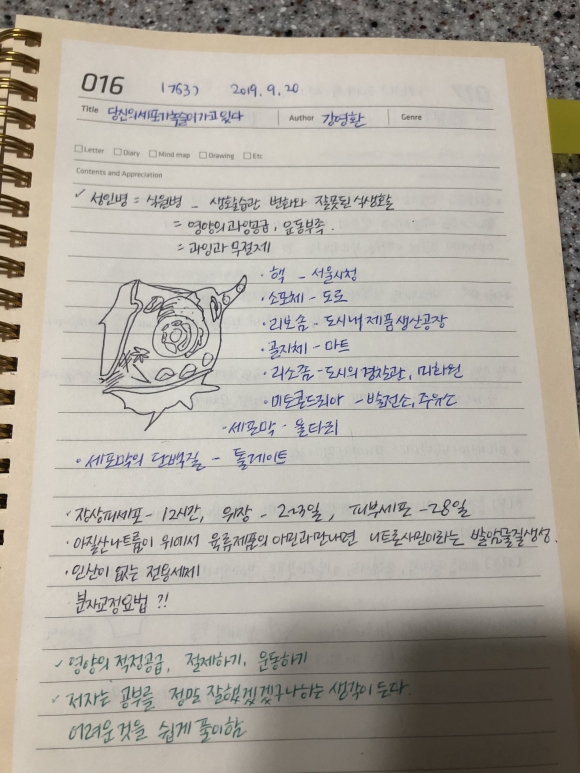 016 (763) 2019. 9. 20
Title 당신의세포가녹슬어가고있다 Author 강영환 Genre
Letter Diary Mind map Drawing Etc
Contents and Appreciation
✓ 성인병 = 식원병 - 생활습관 변화와 잘못된 식생활
= 영양의 과잉공급, 운동부족.
= 과잉과 무절제
· 핵 - 서울시청
· 소포체 - 도로
· 리보솜 - 도시내 제품생산공장
· 골지체 - 마트
· 리소좀 - 도시의 경찰관, 미화원
· 미토콘드리아 - 발전소, 주유소
· 세포막 - 울타리
· 세포막의 단백질 - 톨게이트
· 장상피세포 - 12시간, 위장 - 2~3일, 피부세포 - 28일
· 아질산나트륨이 위에서 육류제품의 아민과만나면 니트로사민이라는 발암물질생성.
· 인산이 없는 전용세제
분자교정요법 ?!
✓ 영양의 적정공급, 절제하기, 운동하기
✓ 저자는 공부를 정말 잘했겠겠구나하는 생각이 든다.
어려운것을 쉽게 풀이함